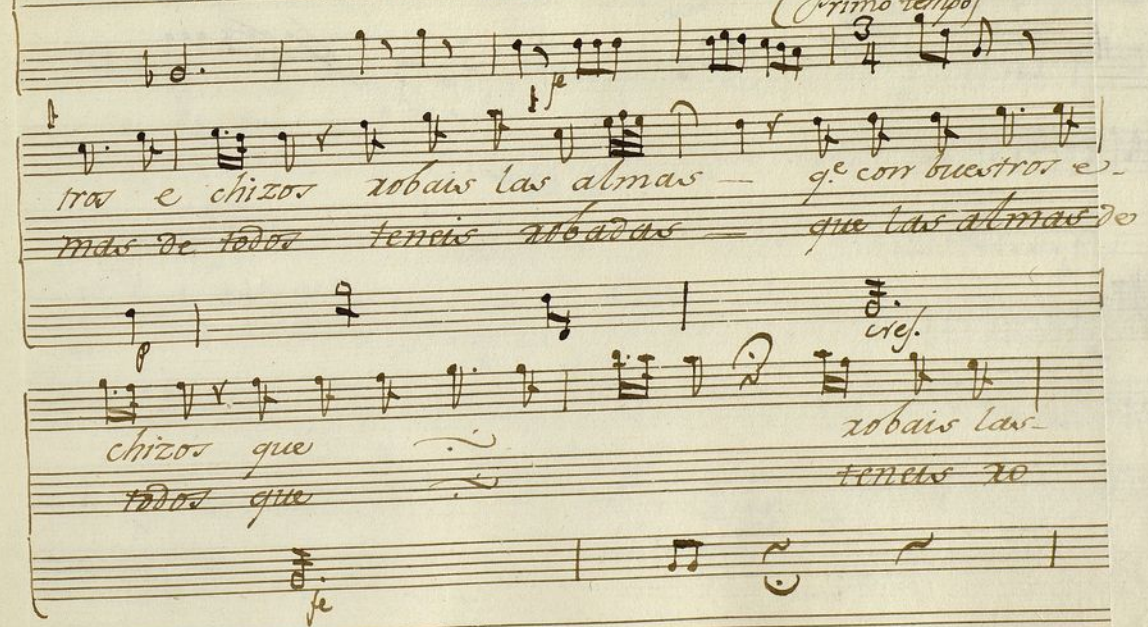 (Primo tempo)
3
4
fe
tros e chizos robais las almas — q.e con buestros e-
mas de todos teneis robadas — que las almas de
p
cres.
chizos que robais las-
todos que teneis ro
fe